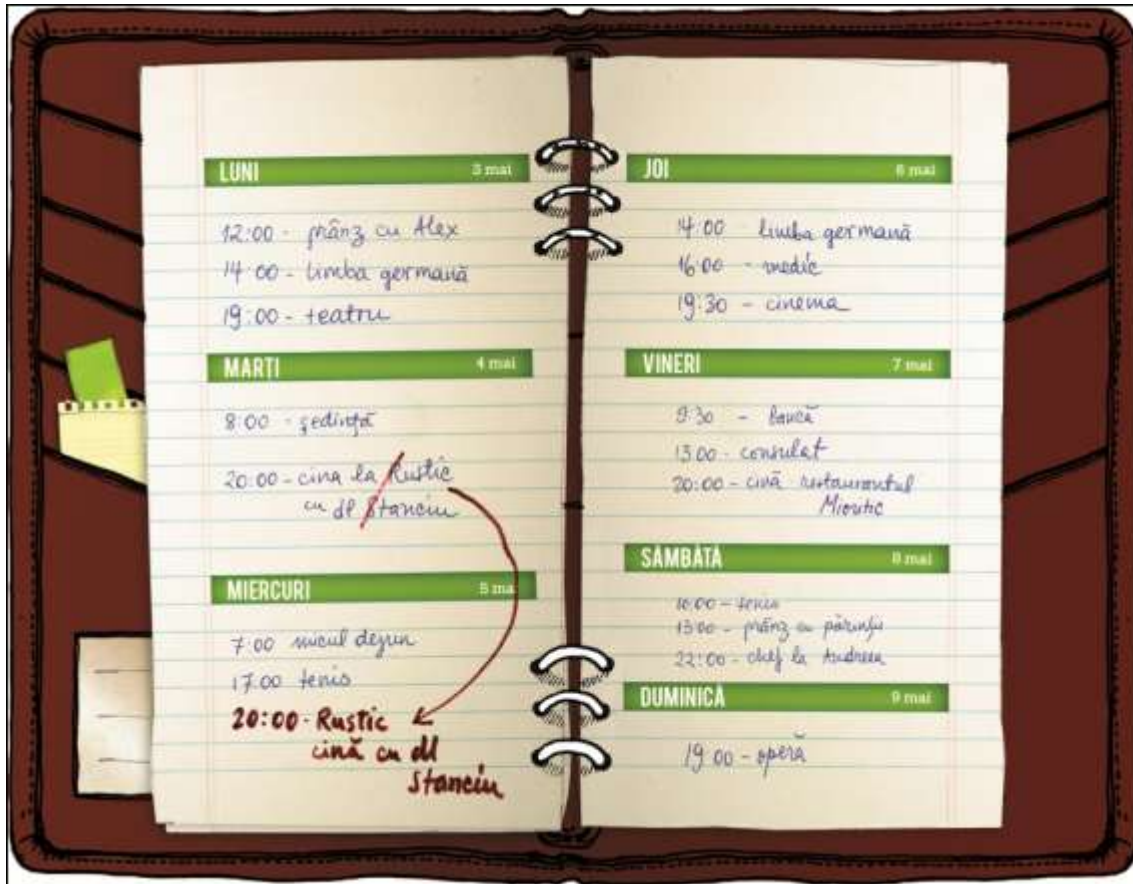 LUNI 3 mai
12:00 - prânz cu Alex
14:00 - limba germană
19:00 - teatru
MARȚI 4 mai
8:00 - ședință
20:00 - cina la Rustic
cu dl Stanciu
MIERCURI 5 mai
7:00 micul dejun
17.00 tenis
20:00 - Rustic
cină cu dl
Stanciu
JOI 6 mai
14:00 limba germană
16:00 - medic
19:30 - cinema
VINERI 7 mai
9:30 - bancă
13:00 - consulat
20:00 - cină restaurantul
Mioritic
SÂMBĂTĂ 8 mai
10:00 - tenis
13:00 - prânz cu părinții
22:00 - chef la Andreea
DUMINICĂ 9 mai
19:00 - operă